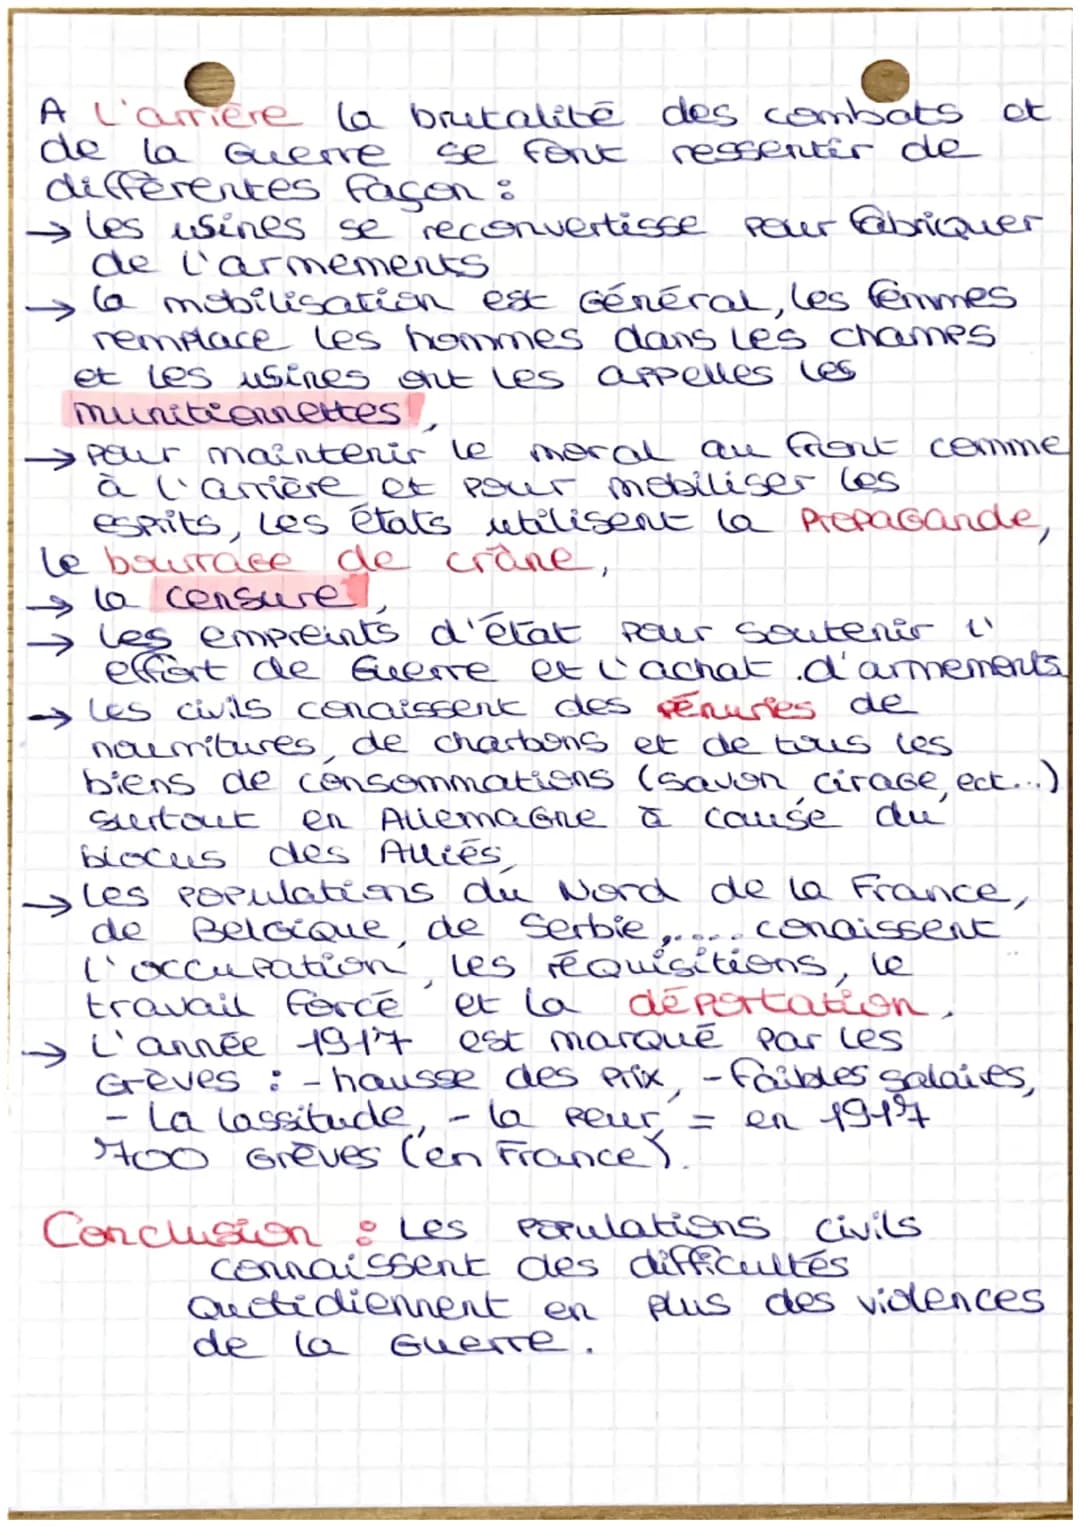 A l'arrière la brutalité des combats et
de la Guerre se font ressentir de
différentes façon :
→ Les usines se reconvertisse pour fabriquer
de l'armements
→ la mobilisation est Général, les femmes
remplace les hommes dans les champs
et les usines ont les appelles les
munitionnettes,
→ pour maintenir le moral au front comme
à l'arrière et pour mobiliser les
esprits, les états utilisent la Propagande,
le bourrage de crâne,
→ la censure,
→ les empreints d'état pour soutenir l'
effort de Guerre et l'achat d'armements
→ les civils conaissent des pénuries de
nourritures, de charbons et de tous les
biens de consommations (savon, cirage, ect...)
surtout en Allemagne à cause du
blocus des Alliés,
→ Les populations du Nord de la France,
de Belgique, de Serbie,.... conaissent
l'occupation, les réquisitions, le
travail forcé et la déportation.
→ L'année 1917 est marqué par les
Grèves : - hausse des prix, - faibles salaires,
- La lassitude, - la peur, = en 1917
700 Grèves (en France).
Conclusion : Les populations civils
connaissent des difficultés
quotidiennent en plus des violences
de la Guerre.